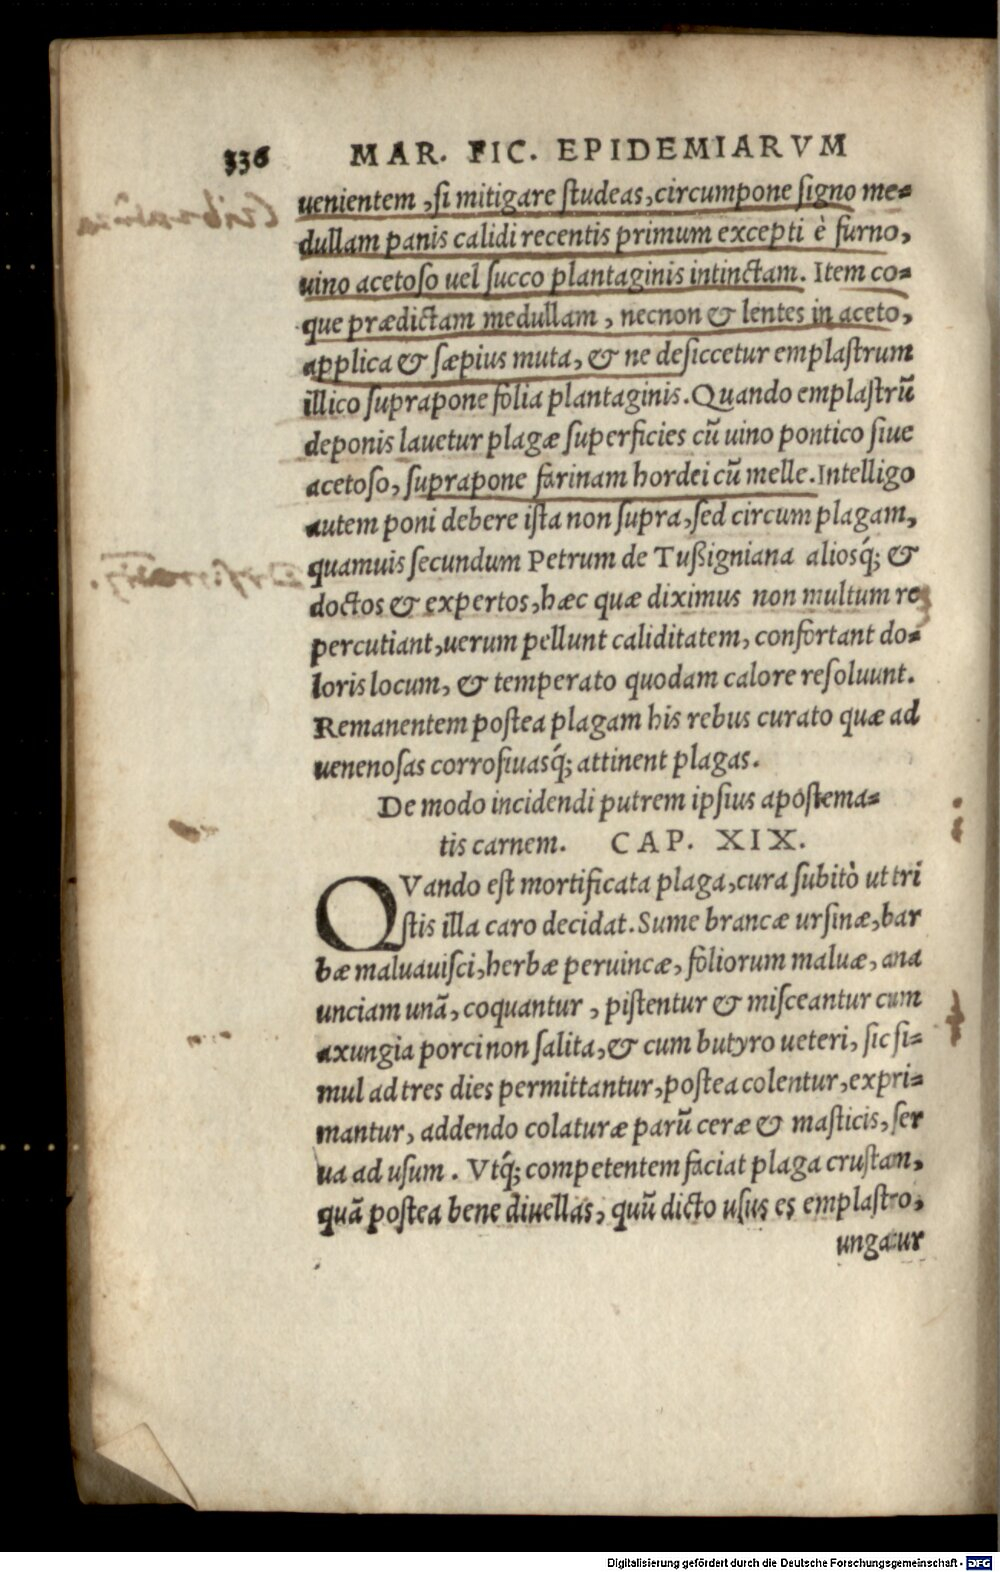 336 MAR. FIC. EPIDEMIARVM
uenientem, si mitigare studeas, circumpone signo me=
dullam panis calidi recentis primum excepti è furno,
uino acetoso uel succo plantaginis intinctam. Item co=
que prædictam medullam, necnon & lentes in aceto,
applica & sæpius muta, & ne desiccetur emplastrum
illico suprapone folia plantaginis. Quando emplastrũ
deponis lauetur plagæ superficies cũ uino pontico siue
acetoso, suprapone farinam hordei cũ melle. Intelligo
autem poni debere ista non supra, sed circum plagam,
quamuis secundum Petrum de Tußigniana aliosq́; &
doctos & expertos, hæc quæ diximus non multum re
percutiant, uerum pellunt caliditatem, confortant do=
loris locum, & temperato quodam calore resoluunt.
Remanentem postea plagam his rebus curato quæ ad
uenenosas corrosiuasq́; attinent plagas.
De modo incidendi putrem ipsius apostema=
tis carnem. CAP. XIX.
QVando est mortificata plaga, cura subitò ut tri
stis illa caro decidat. Sume brancæ ursinæ, bar
bæ maluauisci, herbæ peruincæ, foliorum maluæ, ana
unciam unã, coquantur, pistentur & misceantur cum
axungia porci non salita, & cum butyro ueteri, sic si=
mul ad tres dies permittantur, postea colentur, expri=
mantur, addendo colaturæ parũ ceræ & masticis, ser
ua ad usum. Vtq́; competentem faciat plaga crustam,
quã postea bene diuellas, quũ dicto usus es emplastro,
ungatur
Digitalisierung gefördert durch die Deutsche Forschungsgemeinschaft - DFG